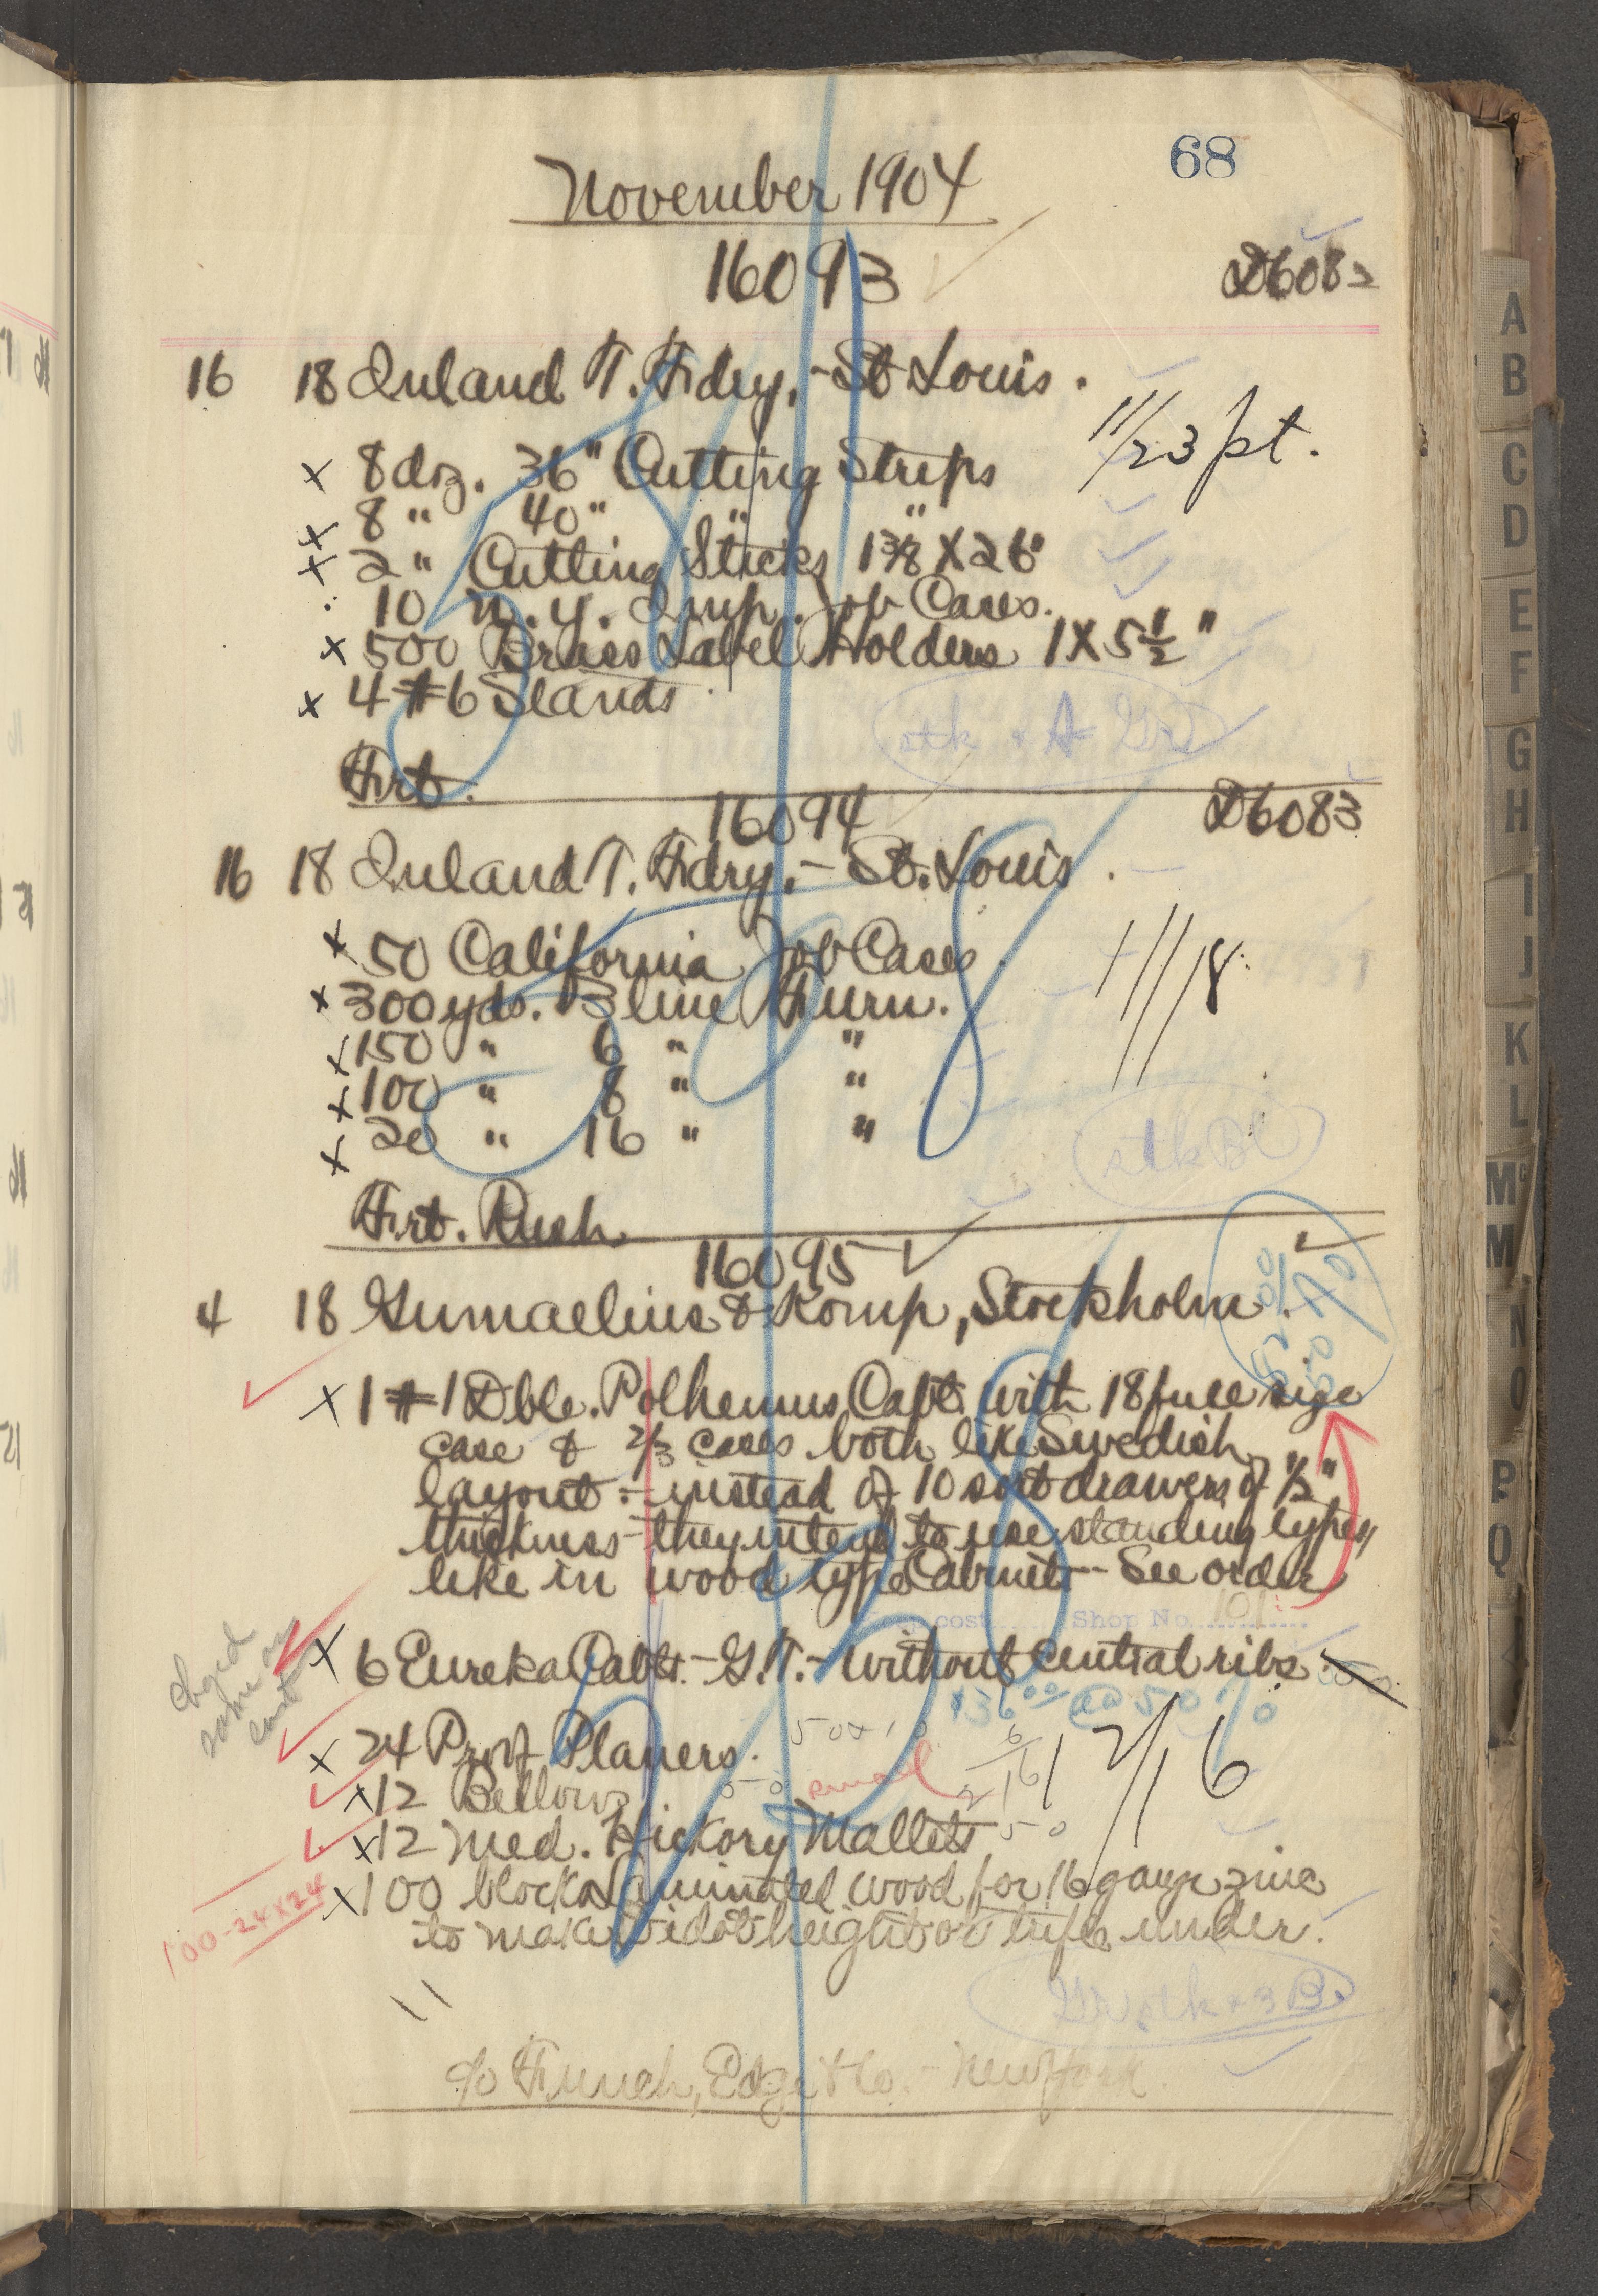 68
November 1904
16093
D6082
16 18 Inland T. Fdry. - St Louis.
11/23 pt.
x 8 doz. 36" Cutting Strips
x 8 " 40" " "
x 2 " Cutting Sticks 1 3/8 X 26"
10 N.Y. Imp. Job Cases.
x 500 Brass Label Holders 1 X 5 1/2"
x 4 #6 Stands
stk & A Gr
Frt.
16094
D6083
16 18 Inland T. Fdry. - St. Louis.
x 50 California Job Cases.
11/18
x 300 yds. 3 line Furn.
x 150 " 6 " "
x 100 " 8 " "
x 20 " 16 " "
stk Bl
Frt. Rush.
16095
4 18 Gumaelius & Komp, Stockholm.
x 1 #1 Dble. Polhemus Cabt. with 18 full size
case & 2/3 cases both like Swedish
layout - instead of 10 sort drawers of 1/2"
thickness - they intend to use standing types
like in wood type Cabinets - See order
cost Shop No. 101
x 6 Eureka Cabts. - G.T. - without central ribs.
chgd
same as
last
$36.00 @ 50 %
x 24 Proof Planers. 50 x 10
12/16
x 12 Bellows 50 small
x 12 Med. Hickory Mallets 50
x 100 blocks Laminated wood for 16 gauge zinc
100-24x24
to make Didot height or trifle under.
Gr stk & 3 B
c/o Funch, Edge & Co. - New York.
A
B
C
D
E
F
G
H
I
J
K
L
Mc
M
N
O
P
Q